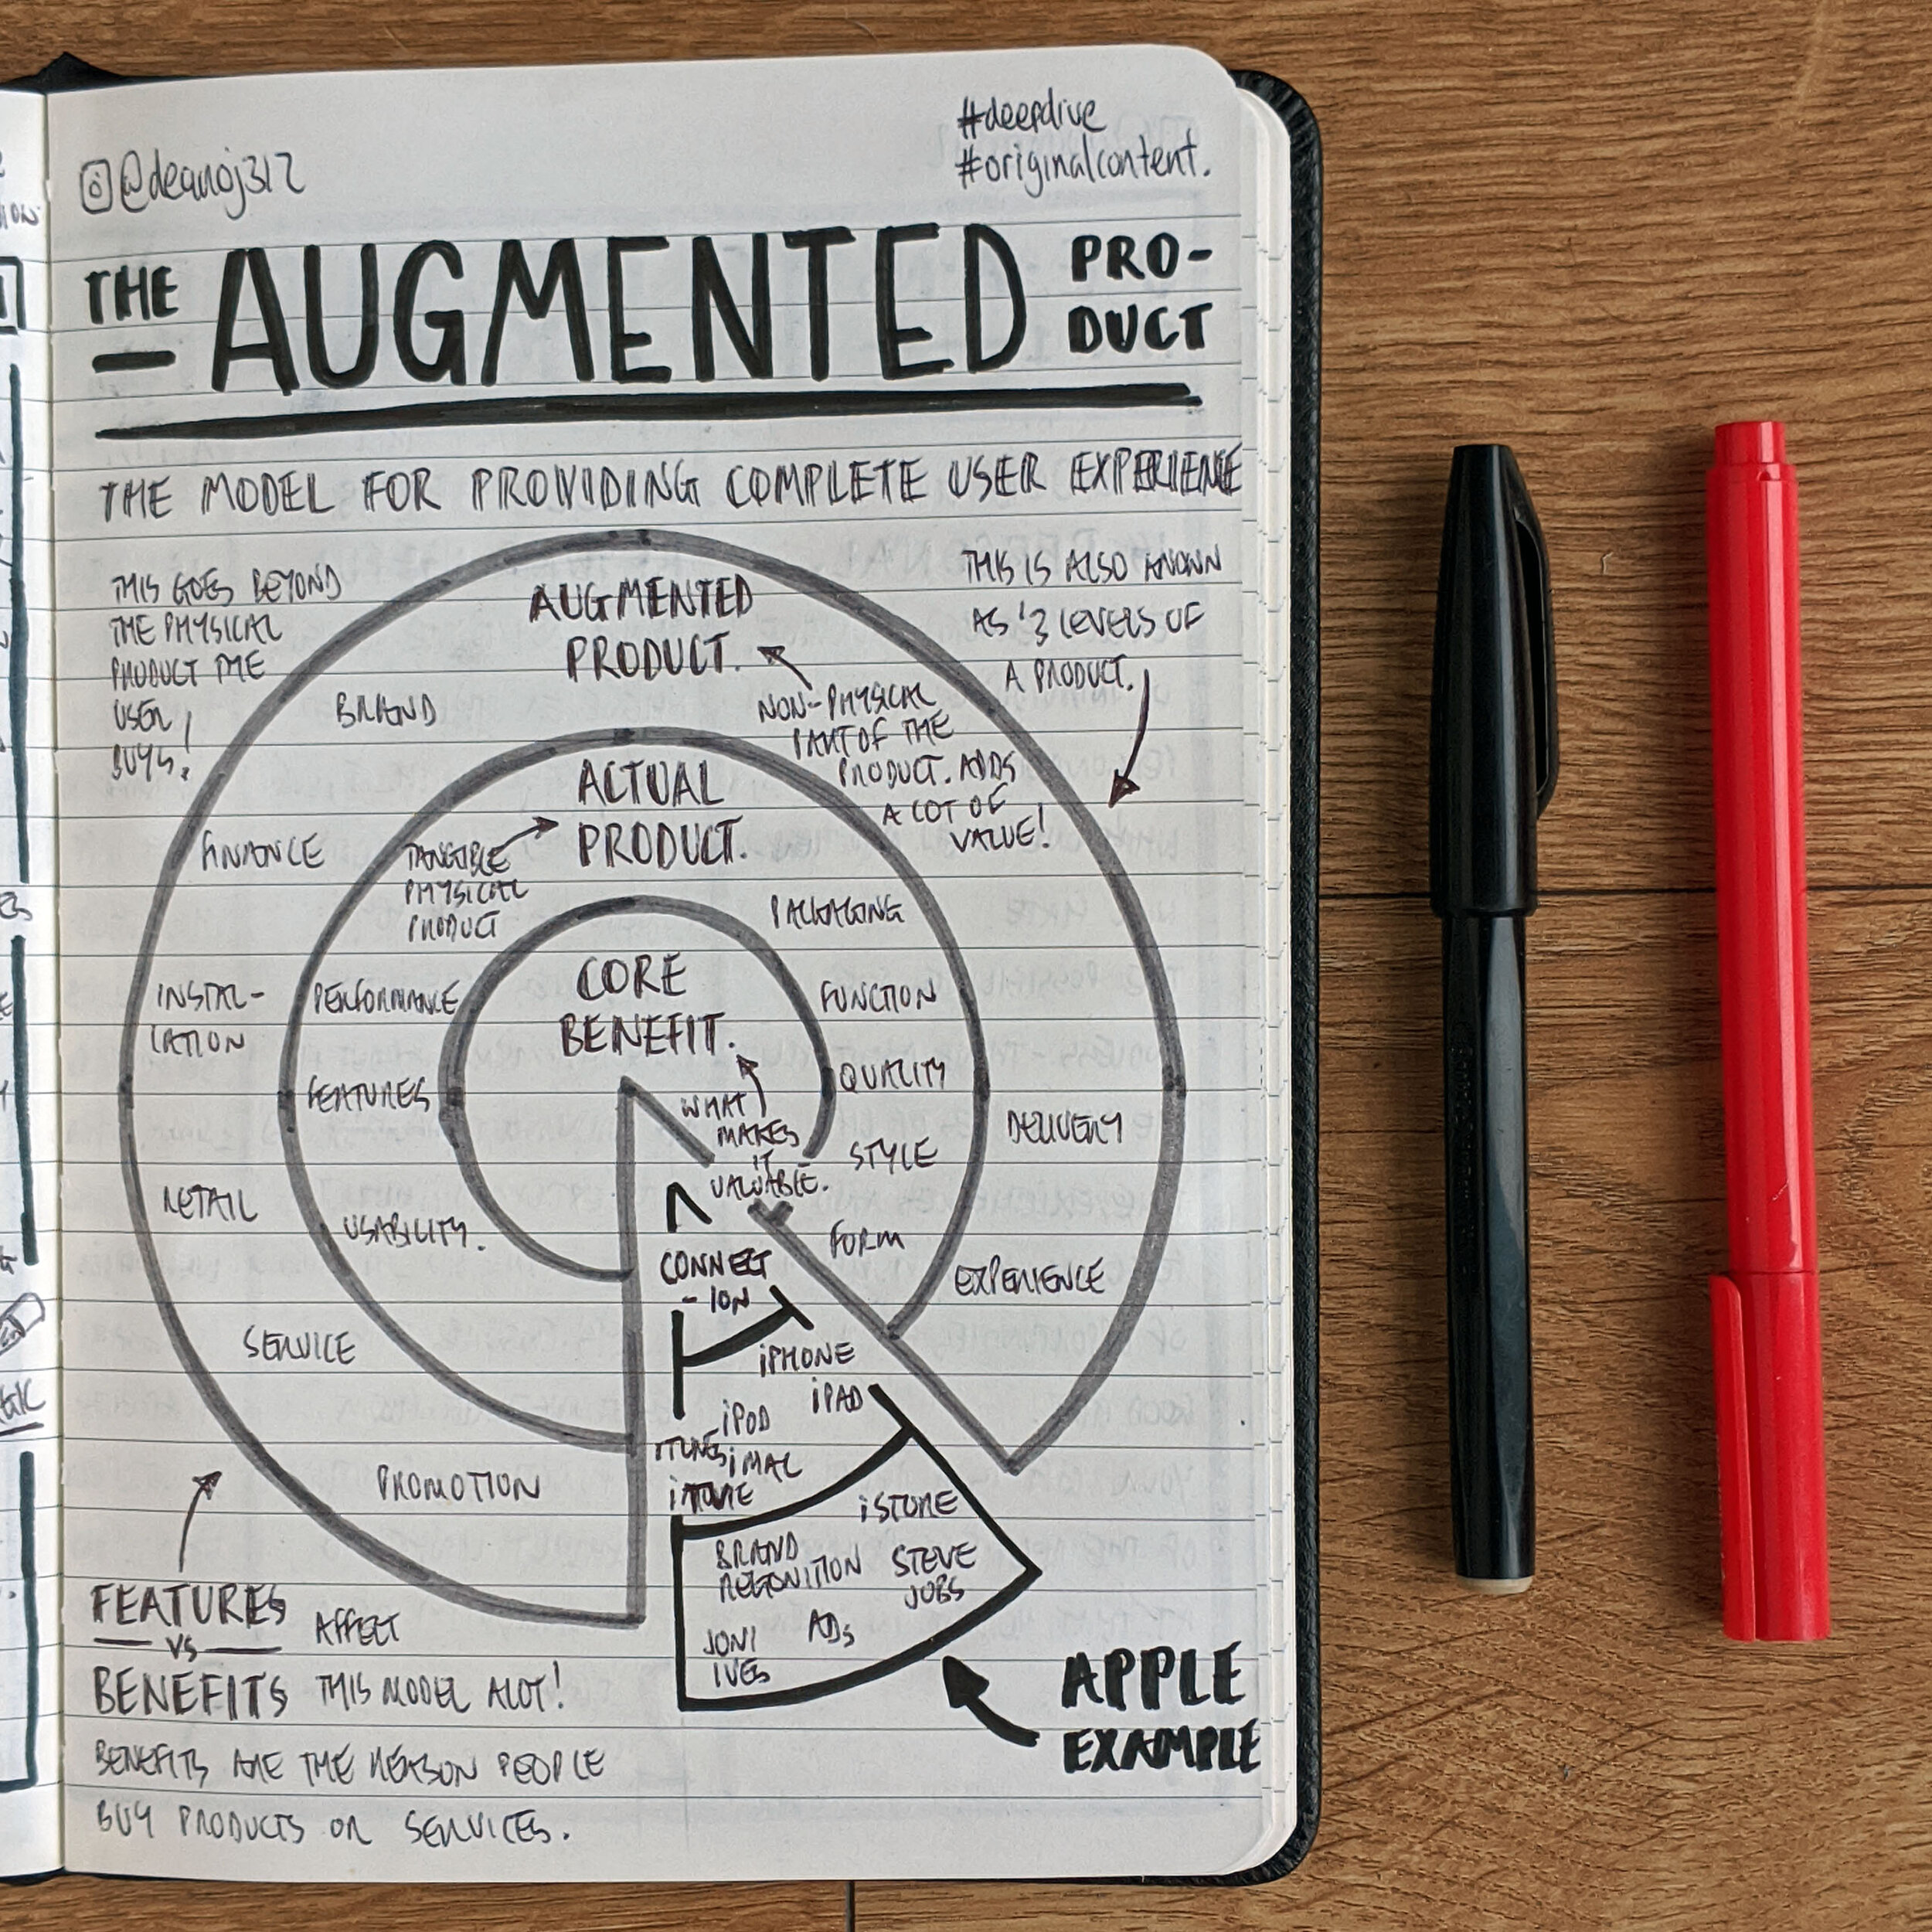 @deanoj312
#deepdive
#originalcontent.
THE AUGMENTED PRO-
DUCT
THE MODEL FOR PROVIDING COMPLETE USER EXPERIENCE
THIS GOES BEYOND
THE PHYSICAL
PRODUCT THE
USER
BUYS!
THIS IS ALSO KNOWN
AS '3 LEVELS OF
A PRODUCT.
AUGMENTED
PRODUCT.
NON-PHYSICAL
PART OF THE
PRODUCT. ADDS
A LOT OF
VALUE!
BRAND
FINANCE
INSTAL-
LATION
RETAIL
SERVICE
PROMOTION
DELIVERY
EXPERIENCE
ACTUAL
PRODUCT.
TANGIBLE
PHYSICAL
PRODUCT
PACKAGING
PERFORMANCE
FUNCTION
FEATURES
QUALITY
STYLE
USABILITY.
FORM
CORE
BENEFIT.
WHAT
MAKES
IT
VALUABLE.
CONNECT
-ION
iPHONE
iPAD
iPOD
ITUNES
iMAC
iSTORE
BRAND
STEVE
JOBS
ADs
JONI
IVES
APPLE
EXAMPLE
FEATURES
VS
BENEFITS
AFFECT
THIS MODEL ALOT!
BENEFITS ARE THE REASON PEOPLE
BUY PRODUCTS OR SERVICES.